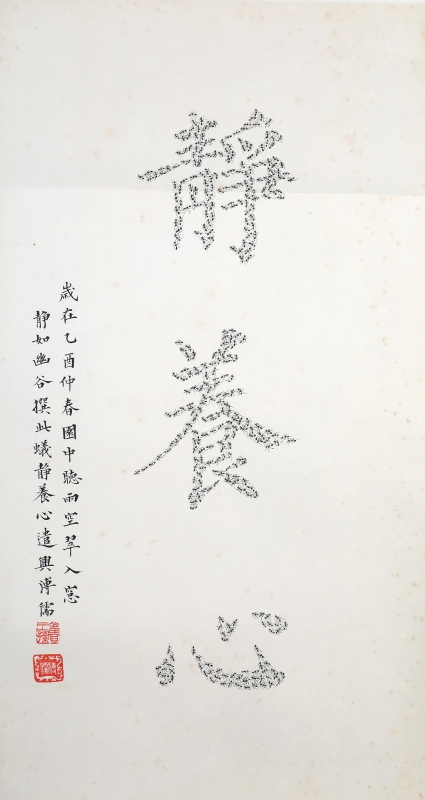 靜
養
心
歲在乙酉仲春園中聽雨空翠入窓
靜如幽谷撰此蟻靜養心遣興溥儒